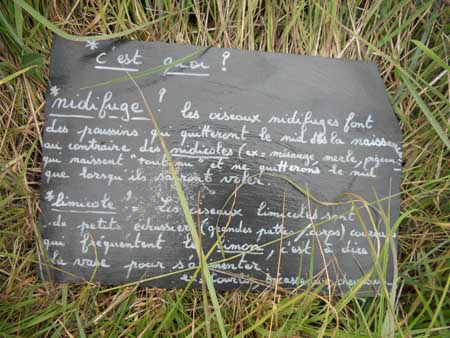 * c'est quoi ?
* nidifuge ? les oiseaux nidifuges font
des poussins qui quitteront le nid dès la naissance
au contraire des nidicoles (ex = mésange, merle, pigeon
qui naissent "tout nu" et ne quitterons le nid
que lorsqu'ils sauront voler.
* limicole ? = les oiseaux limicoles sont
de petits échassiers (grandes pattes,
qui fréquentent le limon, c'est à dire
la vase pour s'alimenter.